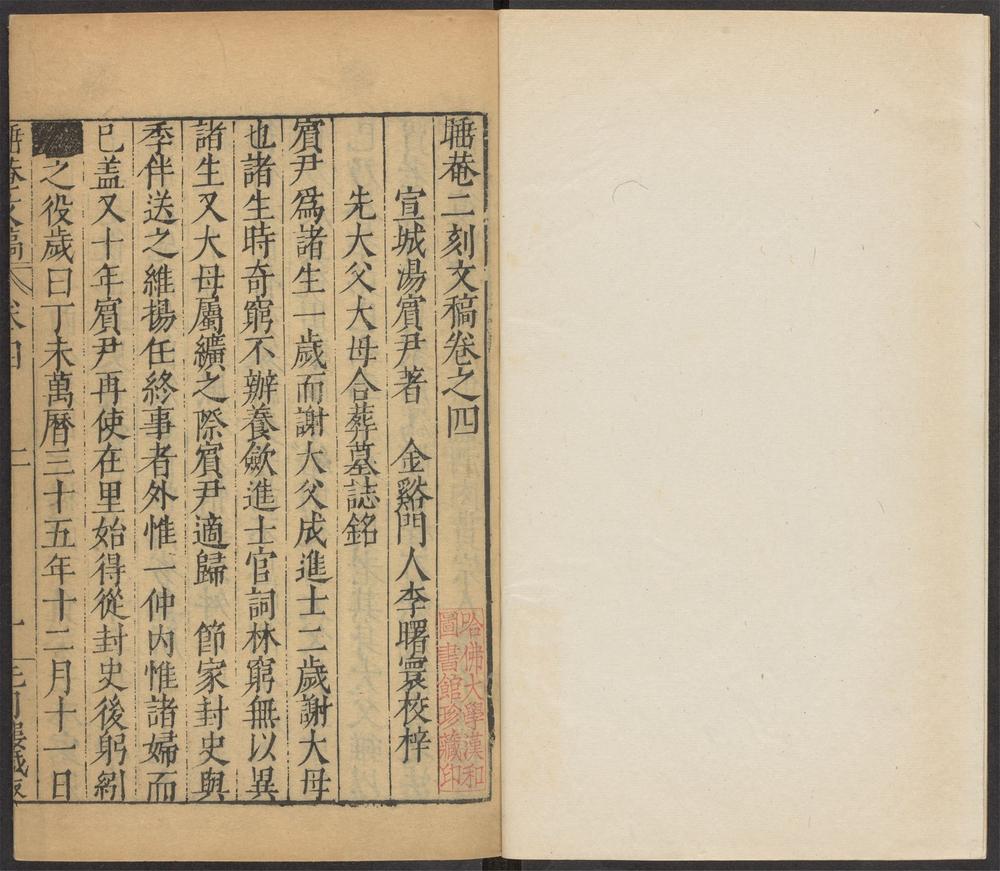 睡菴二刻文稿卷之四
宣城湯賓尹著 金谿門人李曙寰校梓
先大父大母合葬墓誌銘
賓尹爲諸生一歲而謝大父成進士二歲謝大母
也諸生時奇窮不辦養歛進士官詞林窮無以異
諸生又大母屬纊之際賓尹適歸 節家封史與
季伴送之維揚任終事者外惟一仲内惟諸婦而
已盖又十年賓尹再使在里始得從封史後躬紖
之役歲曰丁未萬曆三十五年十二月十一日
睡菴文稿 卷四 一
哈佛大學漢和
圖書館珍藏印